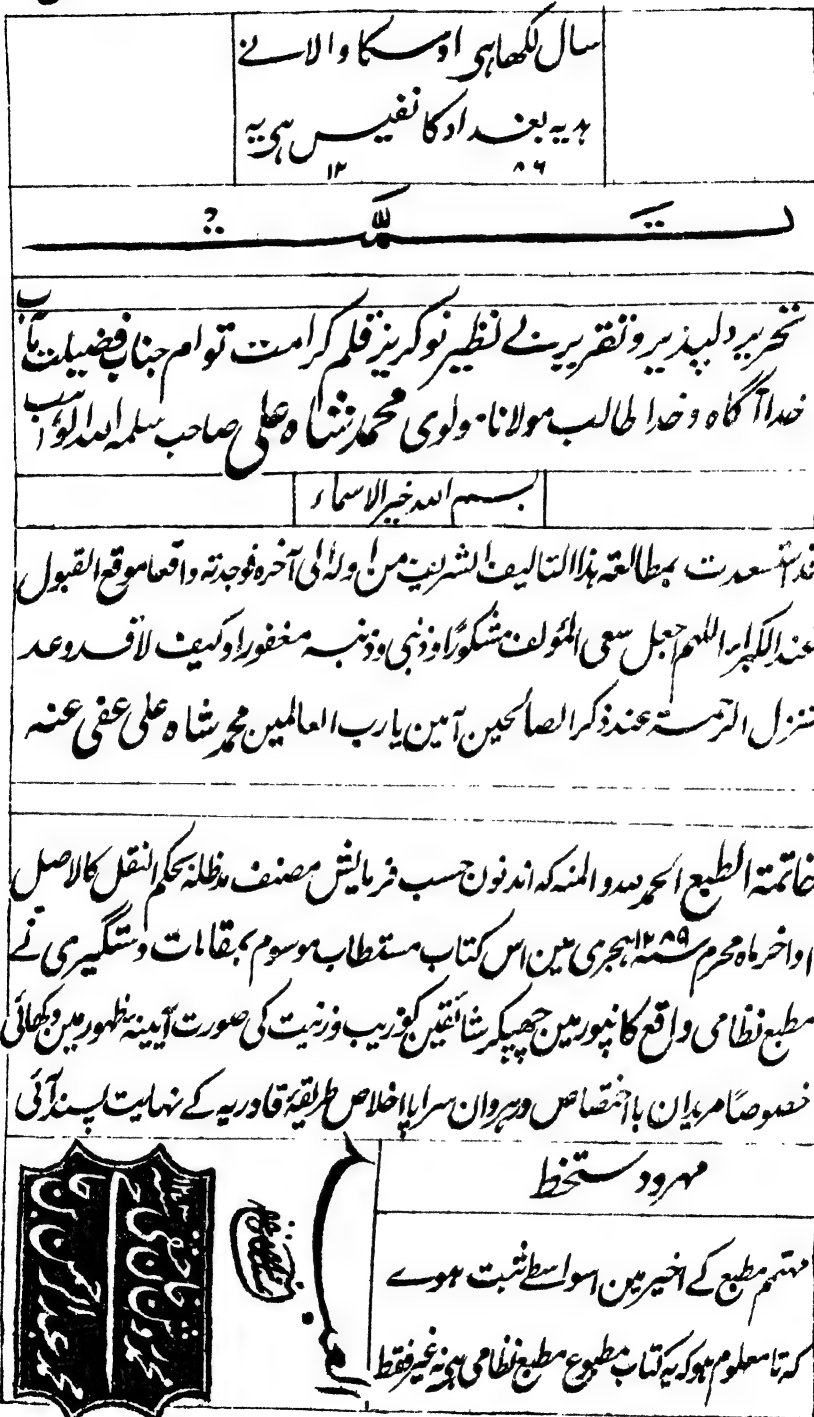 سال لکھا ہی اوسکا والا نے
ہدیہ بغداد کا نفیس ہی یہ
۱۲ ۸۶
تمت
تحریر دلپذیر و تقریر بے نظیر نوکریز قلم کرامت توام جناب فضیلت مآب
خدا آگاہ و خدا طالب مولانا مولوی محمد شاہ علی صاحب سلمہ اللہ الواہب
بسم اللہ خیر الاسماء
قد استسعدت بمطالعتہ ہذا التالیف الشریف من اولہ الی آخرہ فوجدتہ واقعا موقع القبول
عند الکبراء اللہم اجعل سعی المؤلف مشکورًا و ذنبی و ذنبہ مغفورا و کیف لا قد وعد
تنزل الرحمۃ عند ذکر الصالحین آمین یا رب العالمین محمد شاہ علی عفی عنہ
خاتمۃ الطبع الحمد للہ و المنہ کہ اندنون حسب فرمایش مصنف مدظلہ بحکم النقل کالاصل
اواخر ماہ محرم سنہ ۱۲۸۹ ہجری مین اس کتاب مستطاب موسوم بمقامات دستگیری نے
مطبع نظامی واقع کانپور مین چھپکر شائقین کو زیب و زینت کی صورت آیینۂ ظہور مین دکھائی
خصوصًا مریدان با اختصاص و رہروان سراپا اخلاص طریقۂ قادریہ کے نہایت پسند آئی
مہر و دستخط
مہتمم مطبع کے اخیر مین اسواسطے ثبت ہوے
کہ تا معلوم ہو کہ یہ کتاب مطبوع مطبع نظامی ہی نہ غیر فقط
العبد